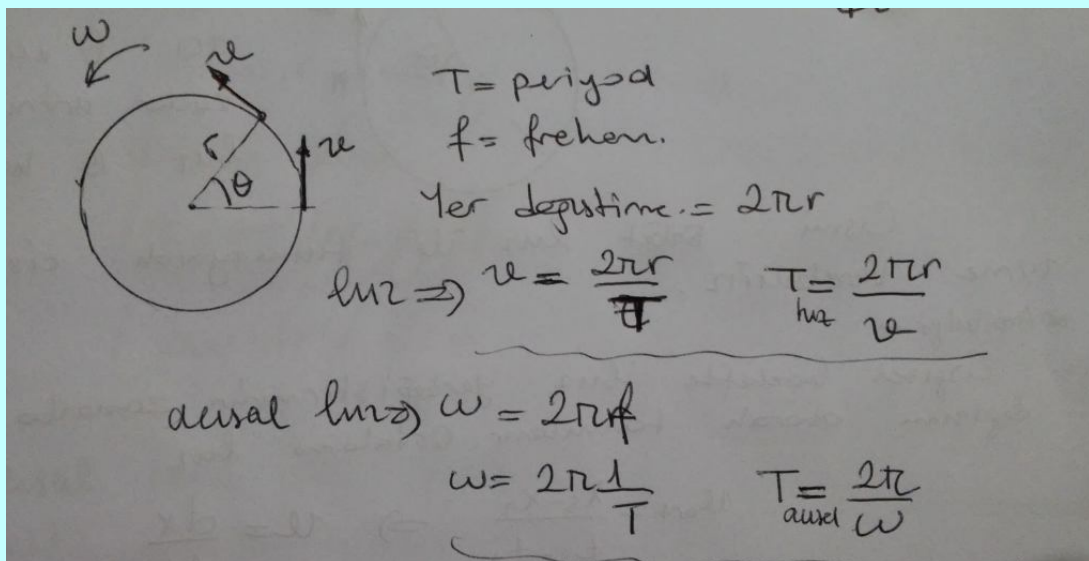 ω
v
r
θ
v
T = periyod
f = frekan.
Yer degistime. = 2πr
hız ⇒ v = 2πr / T   T hız = 2πr / v
acısal hız ⇒ ω = 2πf
ω = 2π 1/T   T acısal = 2π / ω